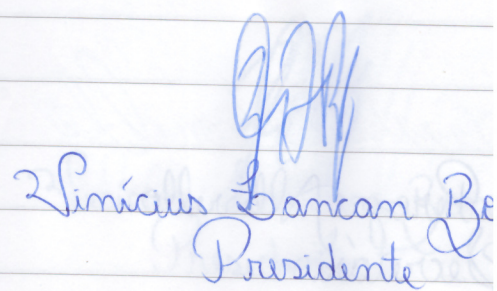 Vinícius Zancan Be
Presidente